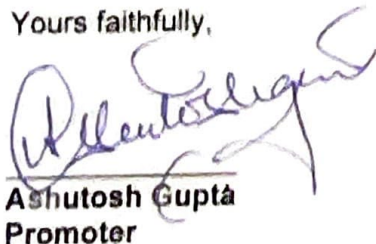 Yours faithfully,
Ashutosh Gupta
Promoter